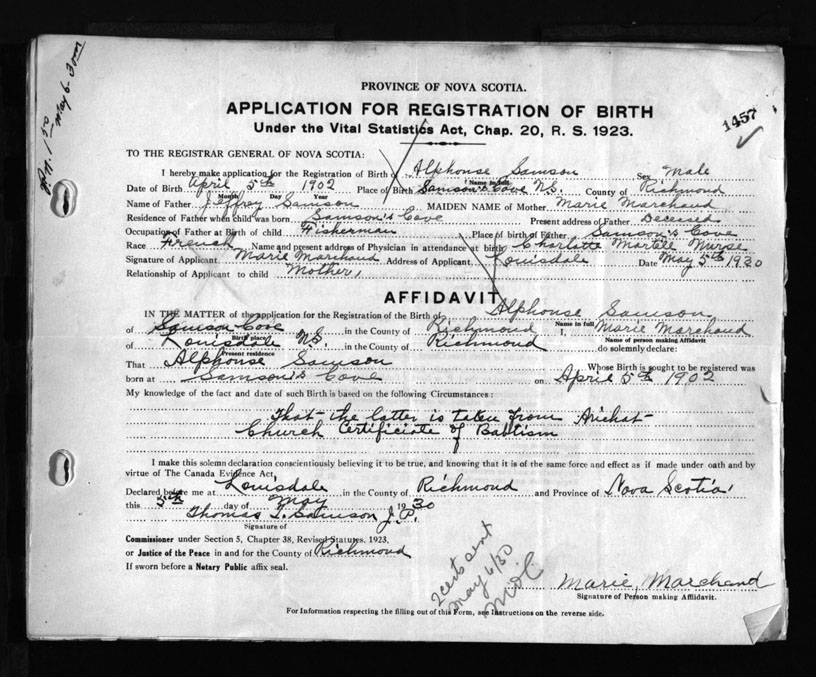 PROVINCE OF NOVA SCOTIA.
APPLICATION FOR REGISTRATION OF BIRTH
Under the Vital Statistics Act, Chap. 20, R. S. 1923.
1457
May 6-30
TO THE REGISTRAR GENERAL OF NOVA SCOTIA:
I hereby make application for the Registration of Birth of Alphonse Samson Sex Male
Name in full
Date of Birth April 5th 1902 Place of Birth Samson's Cove N.S. County of Richmond
Month Day Year
Name of Father Jeffrey Samson MAIDEN NAME of Mother Marie Marchand
Residence of Father when child was born Samson's Cove Present address of Father Deceased
Occupation of Father at Birth of child Fisherman Place of birth of Father Samson's Cove
Race French Name and present address of Physician in attendance at birth Charlotte Martell Nurse
Signature of Applicant Marie Marchand Address of Applicant Louisdale Date May 5th 1930
Relationship of Applicant to child Mother,
AFFIDAVIT
IN THE MATTER of the application for the Registration of the Birth of Alphonse Samson
Name in full
of Samson Cove in the County of Richmond I, Marie Marchand
Birth place Name of person making Affidavit
of Louisdale N.S. in the County of Richmond do solemnly declare:
Present residence
That Alphonse Samson Whose Birth is sought to be registered was
born at Samson's Cove on April 5th 1902
My knowledge of the fact and date of such Birth is based on the following Circumstances:
That the latter is taken from Arichat
Church Certificiate of Baptism
I make this solemn declaration conscientiously believing it to be true, and knowing that it is of the same force and effect as if made under oath and by
virtue of The Canada Evidence Act,
Declared before me at Louisdale in the County of Richmond and Province of Nova Scotia
this 5th day of May 1930
Thomas L. Samson J.P.
Signature of
Commissioner under Section 5, Chapter 38, Revised Statutes, 1923,
or Justice of the Peace in and for the County of Richmond
If sworn before a Notary Public affix seal.
2 certs sent
May 6/30
Marie Marchand
Signature of Person making Affidavit.
For Information respecting the filling out of this Form, see Instructions on the reverse side.